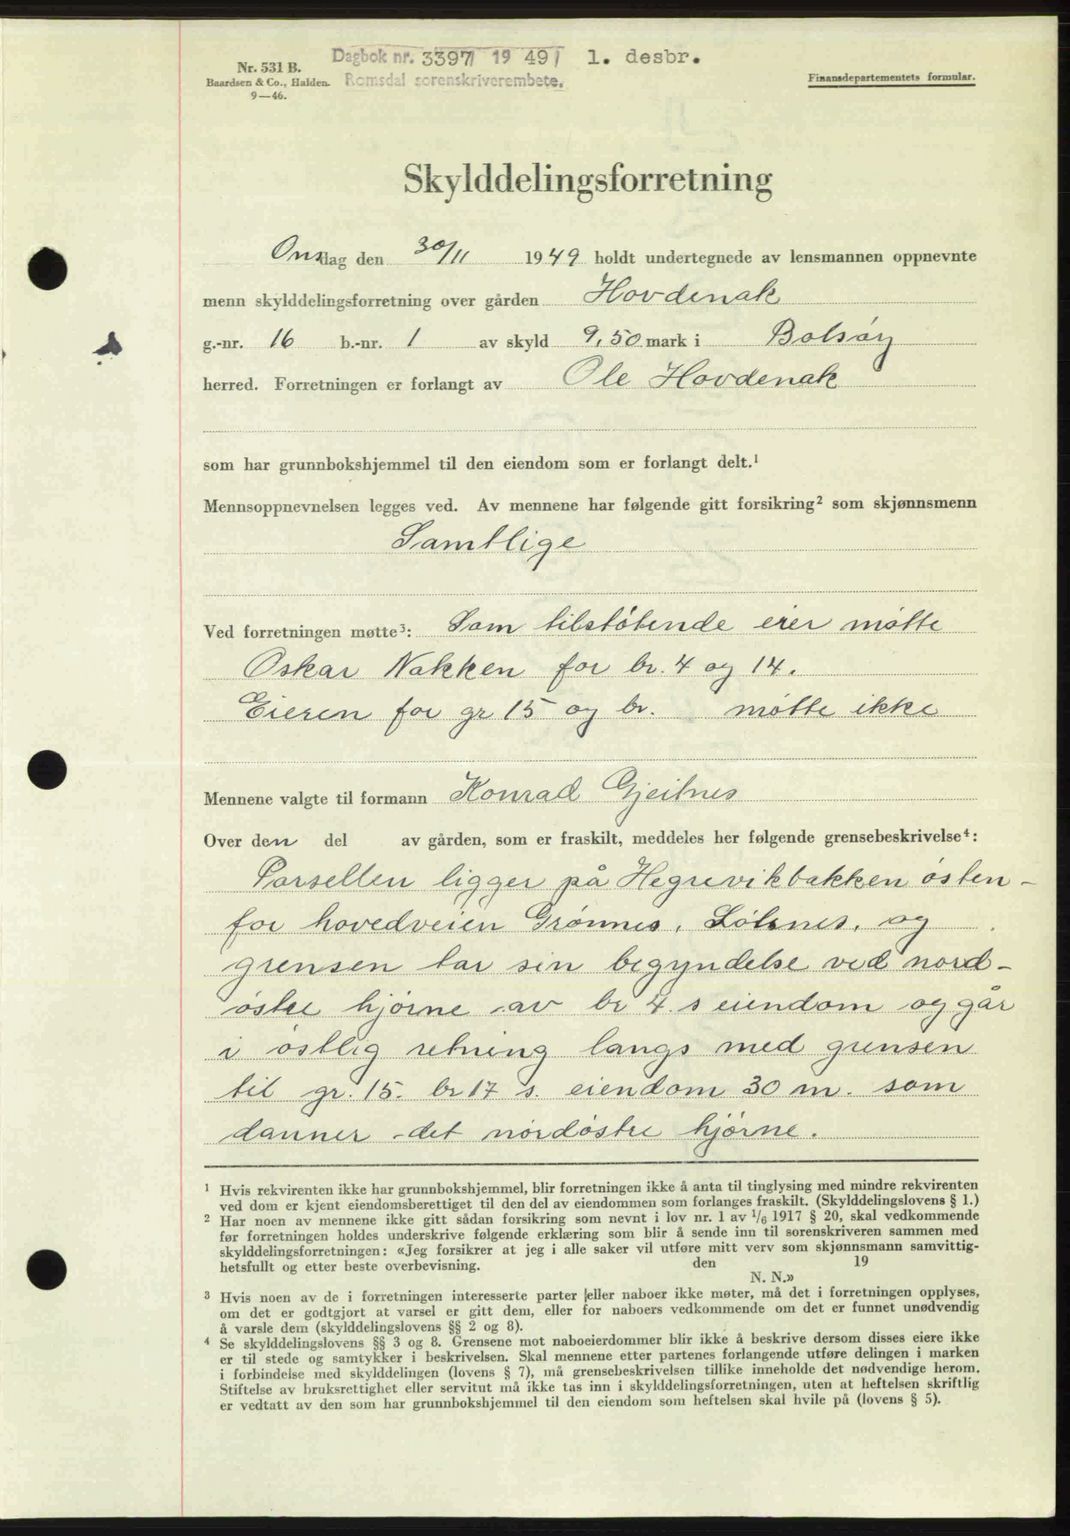 Dagbok nr. 3397 19 49 1. desbr.
Romsdal sorenskriverembete.
Nr. 531 B.
Baardsen & Co., Halden.
9—46.
Finansdepartementets formular.
Skylddelingsforretning
Onsdag den 30/11 1949 holdt undertegnede av lensmannen oppnevnte
menn skylddelingsforretning over gården Hovdenak
g.-nr. 16 b.-nr. 1 av skyld 9,50 mark i Bolsøy
herred. Forretningen er forlangt av Ole Hovdenak
som har grunnbokshjemmel til den eiendom som er forlangt delt.¹
Mennsoppnevnelsen legges ved. Av mennene har følgende gitt forsikring² som skjønnsmenn
Samtlige
Ved forretningen møtte³: Som tilstøtende eier møtte
Oskar Nakken for br. 4 og 14.
Eieren for gr 15 og br. møtte ikke
Mennene valgte til formann Konrad Gjeitnes
Over den del av gården, som er fraskilt, meddeles her følgende grensebeskrivelse⁴:
Parsellen ligger på Hegrevikbakken østen-
for hovedveien Grønnes, Sølsnes, og
grensen tar sin begyndelse ved nord-
østre hjørne av br 4 s eiendom og går
i østlig retning langs med grensen
til gr. 15. br 17 s. eiendom 30 m. som
danner det nordøstre hjørne.
¹ Hvis rekvirenten ikke har grunnbokshjemmel, blir forretningen ikke å anta til tinglysing med mindre rekvirenten
ved dom er kjent eiendomsberettiget til den del av eiendommen som forlanges fraskilt. (Skylddelingslovens § 1.)
² Har noen av mennene ikke gitt sådan forsikring som nevnt i lov nr. 1 av 1/6 1917 § 20, skal vedkommende
før forretningen holdes underskrive følgende erklæring som blir å sende inn til sorenskriveren sammen med
skylddelingsforretningen: «Jeg forsikrer at jeg i alle saker vil utføre mitt verv som skjønnsmann samvittig-
hetsfullt og etter beste overbevisning. den 19
N. N.»
³ Hvis noen av de i forretningen interesserte parter eller naboer ikke møter, må det i forretningen opplyses,
om det er godtgjort at varsel er gitt dem, eller for naboers vedkommende om det er funnet unødvendig
å varsle dem (skylddelingslovens §§ 2 og 8).
⁴ Se skylddelingslovens §§ 3 og 8. Grensene mot naboeierdommer blir ikke å beskrive dersom disses eiere ikke
er til stede og samtykker i beskrivelsen. Skal mennene etter partenes forlangende utføre delingen i marken
i forbindelse med skylddelingen (lovens § 7), må grensebeskrivelsen tillike inneholde det nødvendige herom.
Stiftelse av bruksrettighet eller servitut må ikke tas inn i skylddelingsforretningen, uten at heftelsen skriftlig
er vedtatt av den som har grunnbokshjemmel til den eiendom som heftelsen skal hvile på (lovens § 5).